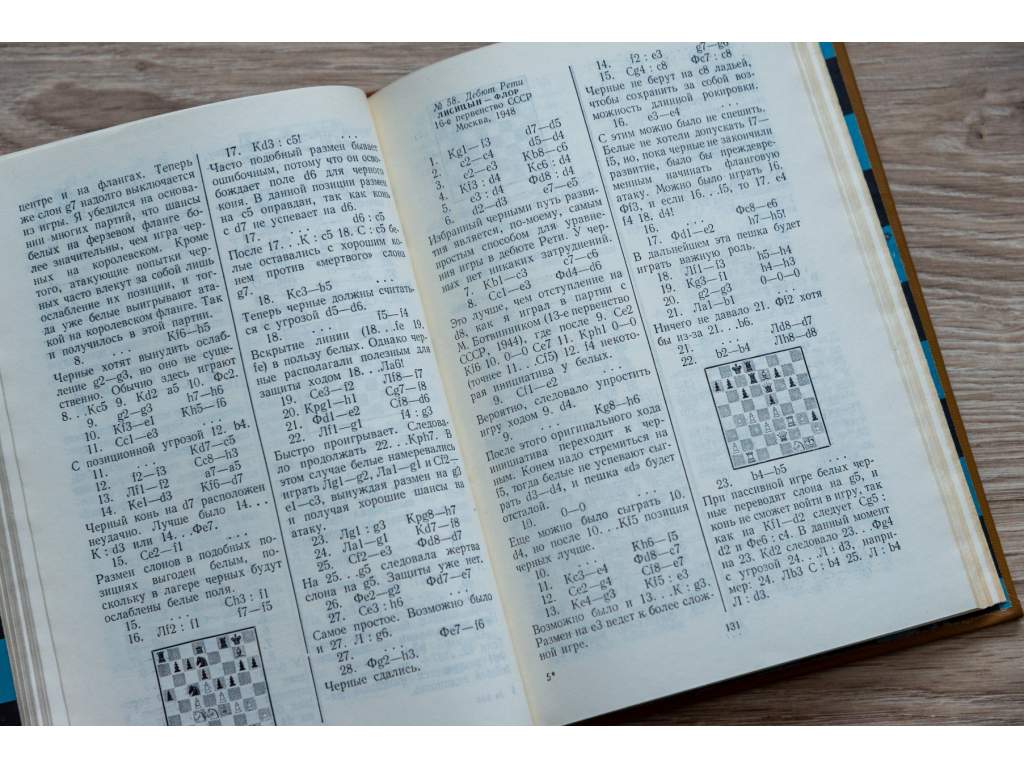 центре и на флангах. Теперь
же слон g7 надолго выключается
из игры. Я убедился на основа-
нии многих партий, что шансы
белых на ферзевом фланге бо-
лее значительны, чем игра чер-
ных на королевском. Кроме
того, атакующие попытки чер-
ных часто влекут за собой лишь
ослабление их позиции, и тог-
да уже белые выигрывают ата-
кой на королевском фланге. Так
и получилось в этой партии.
8. . . . Кf6—h5
Черные хотят вынудить ослаб-
ление g2—g3, но оно не суще-
ственно. Обычно здесь играют
8. . .Кc5 9. Кd2 a5 10. Фc2.
9. g2—g3 h7—h6
10. Кf3—e1 Кh5—f6
11. Сc1—e3
С позиционной угрозой 12. b4.
11. . . . Кd7—c5
12. f2—f3 Сc8—h3
13. Лf1—f2 a7—a5
14. Кe1—d3 Кf6—d7
Черный конь на d7 расположен
неудачно. Лучше было 14. . .
К : d3 или 14. . .Фe7.
15. Сe2—f1 . . .
Размен слонов в подобных по-
зициях выгоден белым, по-
скольку в лагере черных будут
ослаблены белые поля.
15. . . . Сh3 : f1
16. Лf2 : f1 f7—f5
17. Кd3 : c5! . . .
Часто подобный размен бывает
ошибочным, потому что он осво-
бождает поле d6 для черного
коня. В данной позиции размен
на c5 оправдан, так как конь
с d7 не успевает на d6.
17. . . . d6 : c5
После 17. . .К : c5 18. С : c5 бе-
лые оставались с хорошим ко-
нем против «мертвого» слона
g7.
18. Кc3—b5 . . .
Теперь черные должны считать-
ся с угрозой d5—d6.
18. . . . f5—f4
Вскрытие линии (18. . .fe 19.
fe) в пользу белых. Однако чер-
ные располагали полезным для
защиты ходом 18. . .Лa6!
19. Сe3—f2 Лf8—f7
20. Крg1—h1 Сg7—f8
21. Фd1—e2 Сf8—d6
22. Лf1—g1 f4 : g3
Быстро проигрывает. Следова-
ло продолжать 22. . .Крh7. В
этом случае белые намеревались
играть Лg1—g2, Лa1—g1 и Сf2—
e1—c3, вынуждая размен на g3
и получая хорошие шансы на
атаку.
23. Лg1 : g3 Крg8—h7
24. Лa1—g1 Кd7—f8
25. Сf2—e3 Фd8—d7
На 25. . .g5 следовала жертва
слона на g5. Защиты уже нет.
26. Фe2—g2 Фd7—e7
27. Сe3 : h6 . . .
Самое простое. Возможно было
и 27. Л : g6.
27. . . . Фe7—f6
28. Фg2—h3.
Черные сдались.
№ 58. Дебют Рети
ЛИСИЦЫН — ФЛОР
16-е первенство СССР
Москва, 1948
1. Кg1—f3 d7—d5
2. c2—c4 d5—d4
3. e2—e3 Кb8—c6
4. Кf3 : d4 Кc6 : d4
5. e3 : d4 Фd8 : d4
6. d2—d3 e7—e5
Избранный черными путь разви-
тия является, по-моему, самым
простым способом для уравне-
ния игры в дебюте Рети. У чер-
ных нет никаких затруднений.
7. Кb1—c3 c7—c6
8. Сc1—e3 Фd4—d6
Это лучше, чем отступление на
d8, как я играл в партии с
М. Ботвинником (13-е первенство
СССР, 1944), где после 9. Сe2
Кf6 10. 0—0 Сe7 11. Крh1 0—0
(точнее 11. . .Сf5) 12. f4 некото-
рая инициатива у белых.
9. Сf1—e2 . . .
Вероятно, следовало упростить
игру ходом 9. d4.
9. . . . Кg8—h6
После этого оригинального хода
инициатива переходит к чер-
ным. Конем надо стремиться на
f5, тогда белые не успевают сыг-
рать d3—d4, и пешка «d» будет
отсталой.
10. 0—0 . . .
Еще можно было сыграть 10.
d4, но после 10. . .Кf5 позиция
черных лучше.
10. . . . Кh6—f5
11. Кc3—e4 Фd8—c7
12. Сe2—g4 Сf8—e7
13. Кe4—g3 Кf5 : e3
Возможно было и 13. . .К : g3.
Размен на e3 ведет к более слож-
ной игре.
5*
14. f2 : e3 g7—g6
15. Сg4 : c8 Фc7 : c8
Черные не берут на c8 ладьей,
чтобы сохранить за собой воз-
можность длинной рокировки.
16. e3—e4 . . .
С этим можно было не спешить.
Белые не хотели допускать f7—
f5, но, пока черные не закончили
развитие, было бы преждевре-
менным начинать фланговую
атаку. Можно было играть 16.
Фf3, и если 16. . .f5, то 17. e4
f4 18. d4!
16. . . . Фc8—e6
17. Фd1—e2 h7—h5!
В дальнейшем эта пешка будет
играть важную роль.
18. Лf1—f3 h5—h4
19. Кg3—f1 h4—h3
20. g2—g3 0—0—0
21. Лa1—b1 . . .
Ничего не давало 21. Фf2 хотя
бы из-за 21. . .b6.
21. . . . Лd8—d7
22. b2—b4 Лh8—d8
23. b4—b5 . . .
При пассивной игре белых чер-
ные переводят слона на g5, и
конь не сможет войти в игру, так
как на Кf1—d2 следует Сg5 :
d2 и Фe6 : c4. В данный момент
на 23. Кd2 следовало 23. . .Фg4
с угрозой 24. . .Л : d3, напри-
мер: 24. Лb3 С : b4 25. Л : b4
Л : d3.
131